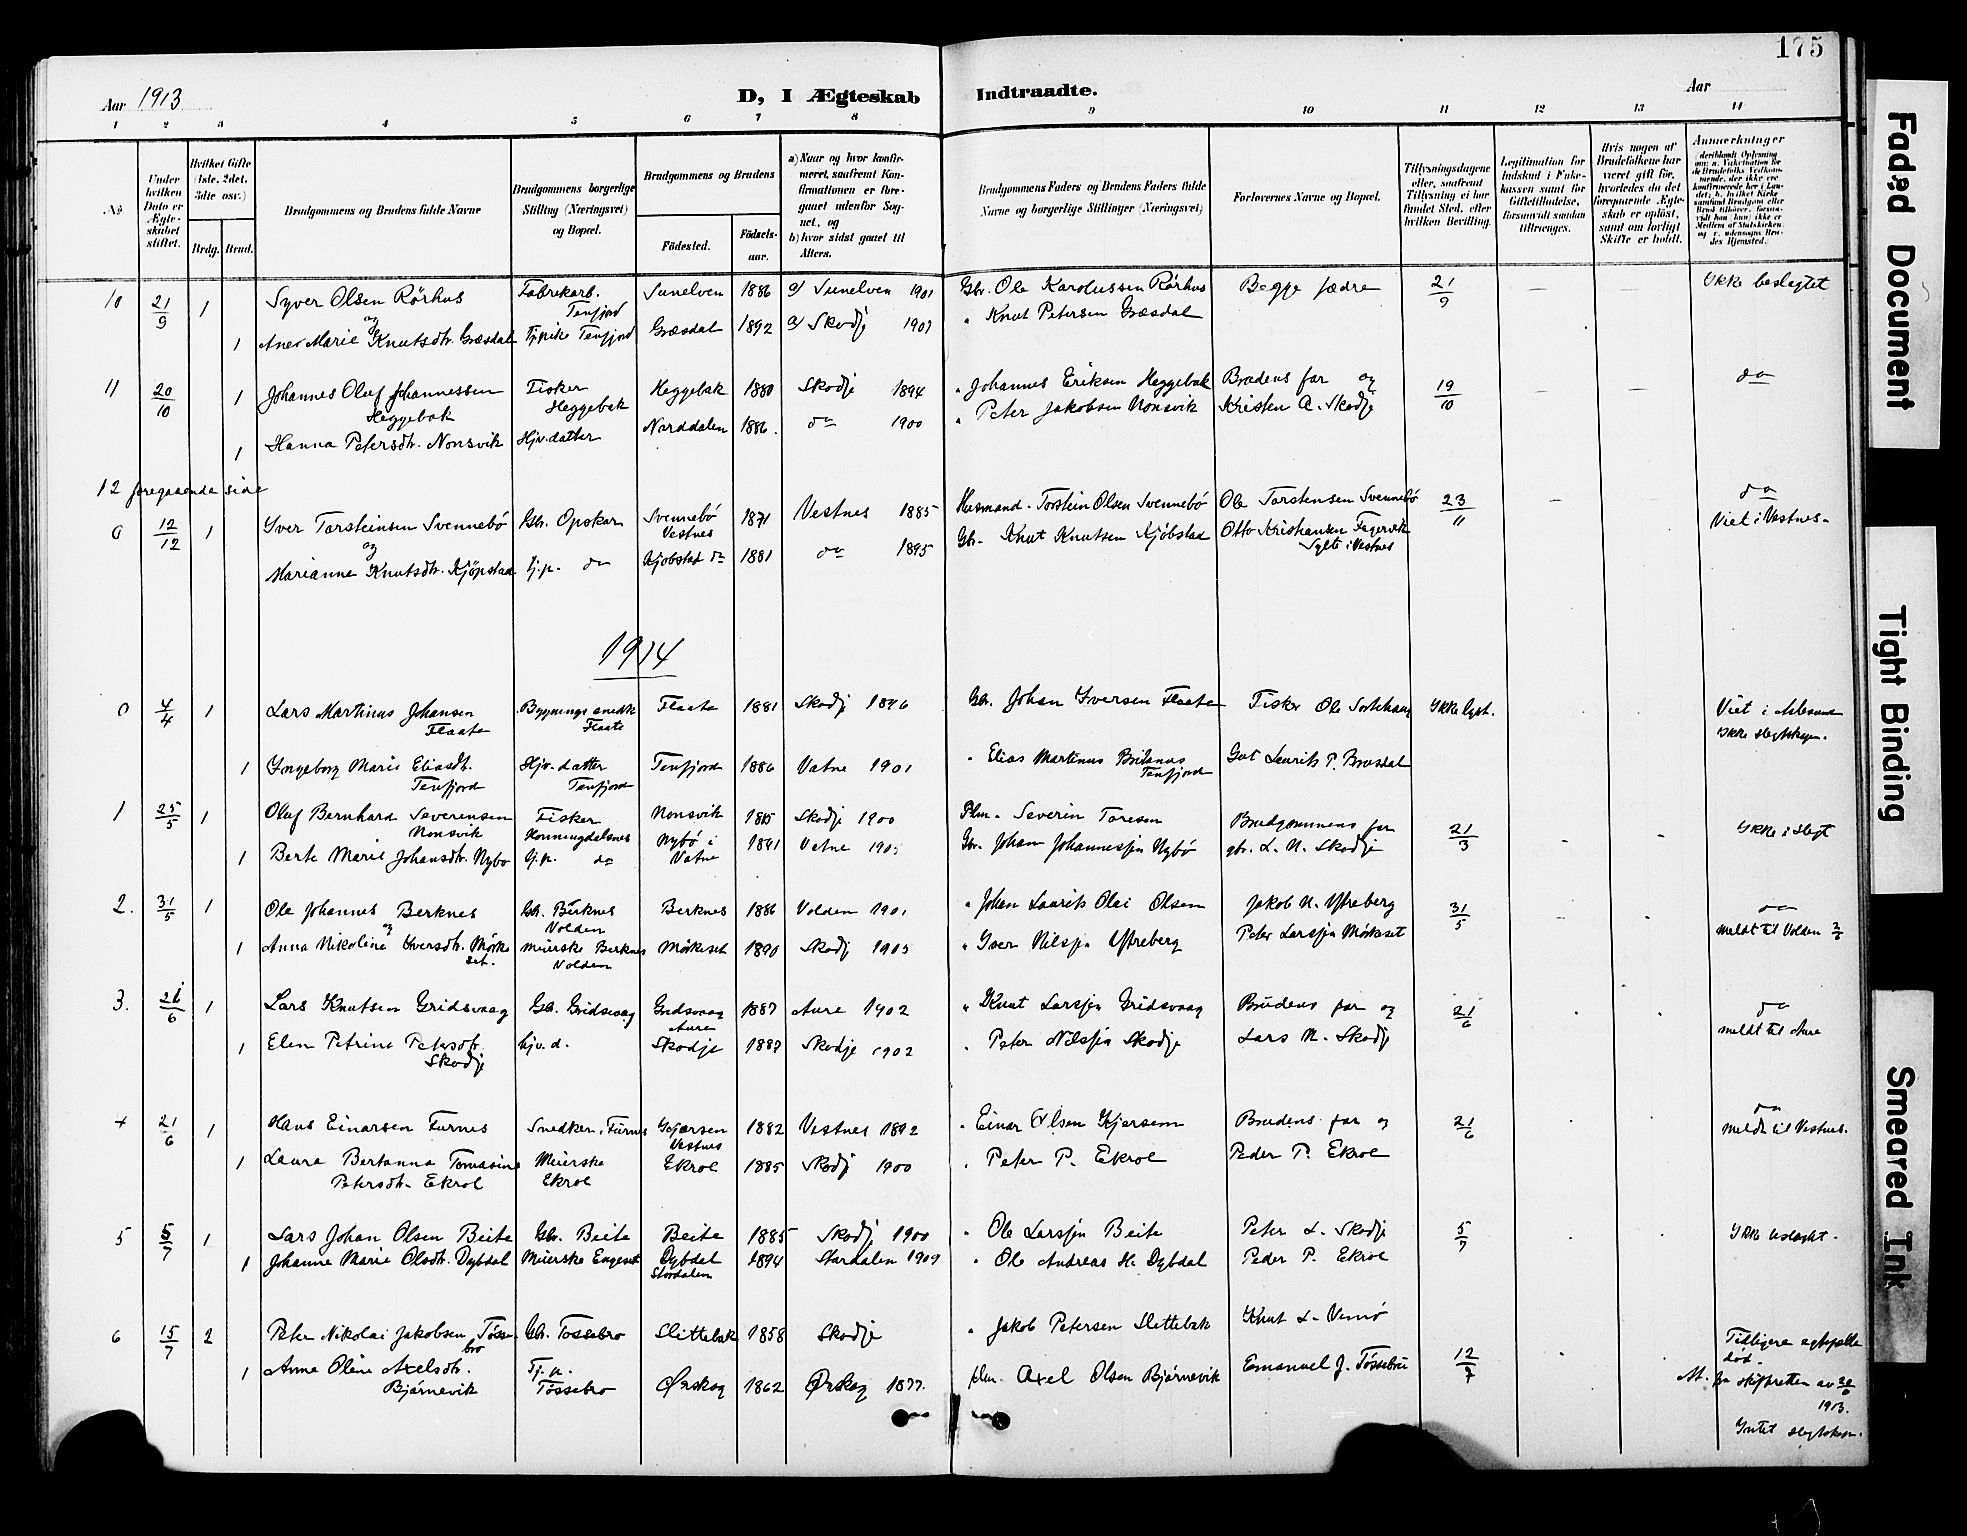 175
Aar 1913
D, I Ægteskab Indtraadte.
Aar
1 2 3 4 5 6 7 8 9 10 11 12 13 14
No
Under hvilken Dato er Ægteskabet stiftet.
Hvilket Gifte (1ste, 2det, 3die osv.)
Brdg. Brud.
Brudgommens og Brudens fulde Navne
Brudgommens borgerlige Stilling (Næringsvei) og Bopæl.
Brudgommens og Brudens
Födested. Födselsaar.
a) Naar og hvor konfirmeret, saafremt Konfirmationen er foregaaet udenfor Sognet, og
b) hvor sidst gaaet til Alters.
Brudgommens Faders og Brudens Faders fulde Navne og borgerlige Stillinger (Næringsvei)
Forlovernes Navne og Bopæl.
Tillysningsdagene eller, saafremt Tillysning ei har fundet Sted, efter hvilken Bevilling.
Legitimation for Indskud i Enkekassen samt for Giftetilladelse, forsaavidt saadan tiltrænges.
Hvis nogen af Brudefolkene har været gift før, hvorledes da det foregaaende Ægteskab er oplöst, samt om lovligt Skifte er holdt.
Anmerkninger
10 21/9 1 Syver Olsen Rörhus Fabrekarb. Tenfjord Sunelven 1886 a) Sunelven 1901 Gbr. Ole Karolussen Rörhus Begge fædre 21/9 — — Ikke beslegtet
og
1 Ane Marie Knutsdtr. Græsdal Fabrike Tenfjord Græsdal 1892 a) Skodje 1907 " Knut Petersen Græsdal
11 20/10 1 Johannes Oluf Johannessen Heggebak Fisker Heggebak Heggebak 1880 Skodje 1894 " Johannes Eriksen Heggebak Brudens far og 19/10 — — do
1 Hanna Petersdtr. Nonsvik Hjv. datter Norddalen 1886. do 1900 " Peter Jakobsen Nonsvik Kristen A. Skodje
12 foregaaende side
0 12/12 1 Yver Torsteinsen Svennebö Gbr. Opskar Svennebö Vestnes 1871 Vestnes 1885 Husmand Torstein Olsen Svennebö Ole Torstensen Svennebö 23/11 — — do
og Viet i Vestnes.
Marianne Knutsdtr. Kjöpstad tj.p. do Kjöbstad do 1881 do 1895 Gbr. Knut Knutsen Kjöbstad Otto Kristiansen Fagervik Sylte i Vestnes
1914
0 4/4 1 Lars Martinus Johansen Flaate Bygningssnedk Flaate Flaate 1881 Skodj 1896 Gbr. Johan Iversen Flaate Fisker Ole Ikke lyst. Viet i Aalesund
Ikke slegtskap.
1 Ingeborg Marie Eliasdt. Tenfjord Hjv. datter Tenfjord Tenfjord 1886 Vatne 1901 " Elias Martinus Tenfjord Laurits P. Brusdal
1 25/5 1 Oluf Bernhard Severensen Nonsvik Fisker Honningdalsnes Nonsvik 1885 Skodje 1900 Plm. Severin Toresen Brudgommens far 21/3 Ikke i slegt
1 Berte Marie Johansdtr. Nybø tj.p. do Nybø i Vatne 1891 Vatne 1905 Gbr. Johan Johannessen Nybø gbr. L. N. Skodje
2. 31/5 1 Ole Johannes Berknes Gb. Berknes Volden Berknes 1886 Volden 1901 " Johan Laurits Olai Olsen Jakob N. Ytreberg 31/5 do
og meldt til Volden 2/6
1 Anna Nikoline Iversdtr. Mörkeset. Meierske Berknes Volden Mörkeset 1890 Skodj 1905 " Iver Nilsen Ytreberg Peter Larssen Mörkeset
3. 21/6 1 Lars Knutsen Gridsvaag Gb. Gridsvaag Gridsvaag Aure 1887 Aure 1902 " Knut Larssen Gridsvaag Brudens far og 21/6 do
meldt til Aure
1 Elen Petrine Petersdtr. Skodje hjv. d. Skodje 1887 Skodje 1902 " Peter Nilssen Skodje Lars N. Skodj
4 21/6 1 Hans Einarsen Furnes Snedker, Furnes Gjærsen Vestnes 1882 Vestnes 1892 " Einar Olsen Kjersem Brudens far og 21/6 do
meldt til Vestnes.
1 Laura Bertanna Tomasine Petersdtr. Ekrol Meierske Ekrol Ekrol 1885 Skodj 1900 " Peter P. Ekrol Peder P. Ekrol
5 5/7 1 Lars Johan Olsen Beite Gb. Beite Beite 1885 Skodj 1900 " Ole Larssen Beite Peter L. Skodje 5/7 Ikke beslegtet.
1 Johanne Marie Olsdtr. Dybdal Meierske Engeset Dybdal Stordalen 1894 Stordalen 1909 " Ole Andreas H. Dybdal Peder P. Ekrol
6 15/7 2 Peter Nikolai Jakobsen Tössebro Gb. Tossebro Slettebak 1858 Skodje " Jakob Petersen Slettebak Knut L. 12/7 Tidligere egtefelle död.
1 Anne Oline Axelsdtr. Bjørnevik Tj. p. Tössebro Ørskog 1862 Ørskog 1877. plm. Axel Olsen Bjørnevik Emanuel J. Tössebro At. fra skifteretten av
1913.
Intet slegtskap.
Faded Document
Tight Binding
Smeared Ink